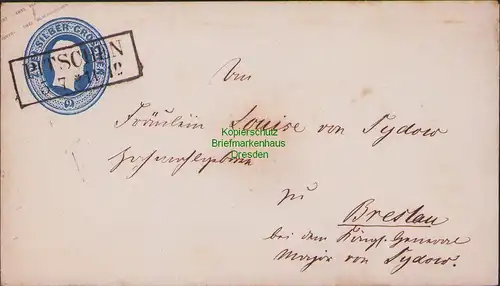 ZWEI SILBER GROSCHEN
2
PITSCHEN
7 11 12
An
Fräulein Louise von Sydow
Hochwohlgeboren
zu
Breslau
bei dem Königl. General
Major von Sydow.
Kopierschutz
Briefmarkenhaus
Dresden